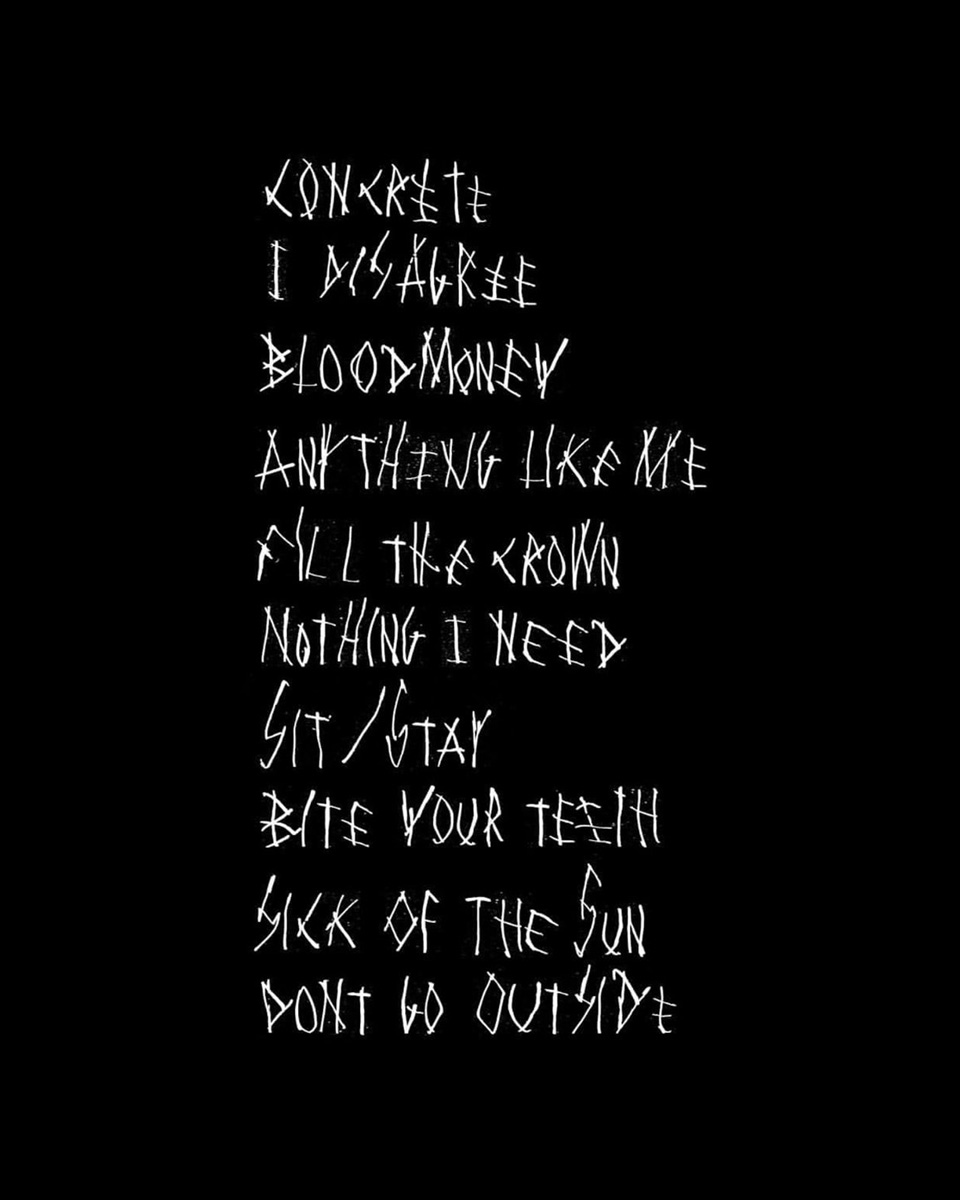 CONCRETE
I DISAGREE
BLOODMONEY
ANYTHING LIKE ME
FILL THE CROWN
NOTHING I NEED
SIT / STAY
BITE YOUR TEETH
SICK OF THE SUN
DONT GO OUTSIDE